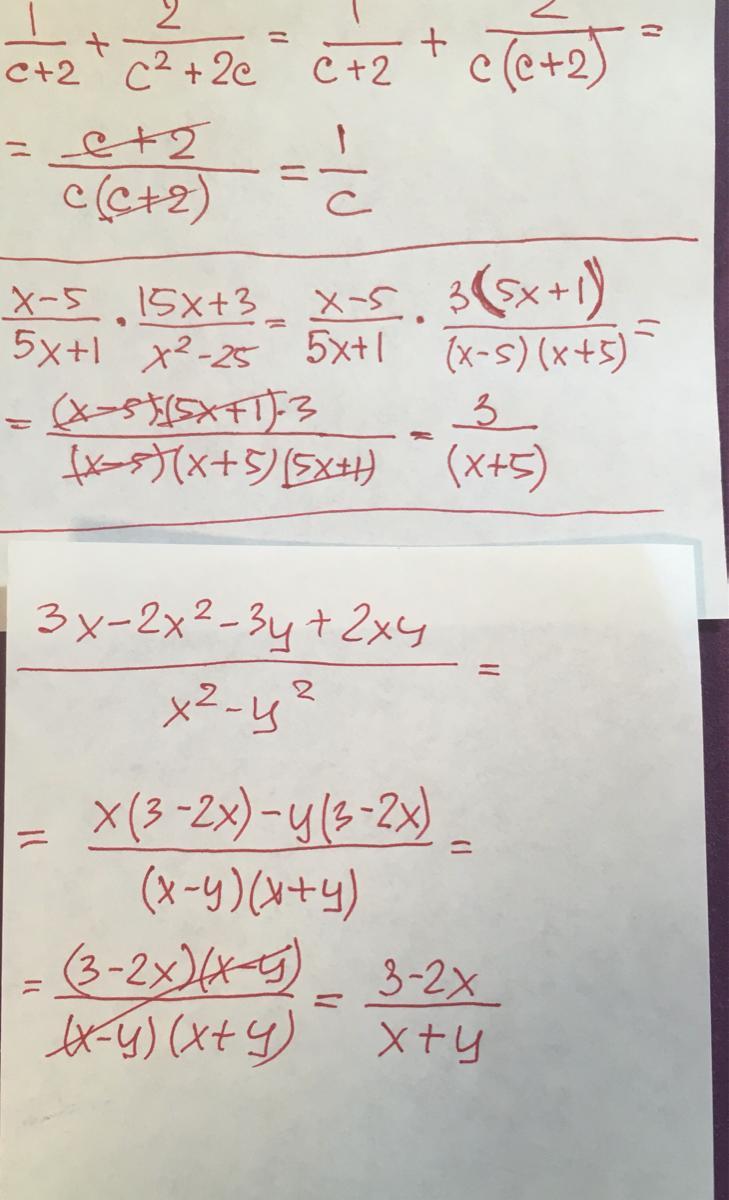 1/(c+2) + 2/(c²+2c) = 1/(c+2) + 2/(c(c+2)) =
= (c+2)/(c(c+2)) = 1/c
(x-5)/(5x+1) · (15x+3)/(x²-25) = (x-5)/(5x+1) · 3(5x+1)/((x-5)(x+5)) =
= ((x-5)·(5x+1)·3)/((x-5)(x+5)(5x+1)) = 3/(x+5)
(3x-2x²-3y+2xy)/(x²-y²) =
= (x(3-2x)-y(3-2x))/((x-y)(x+y)) =
= ((3-2x)(x-y))/((x-y)(x+y)) = (3-2x)/(x+y)